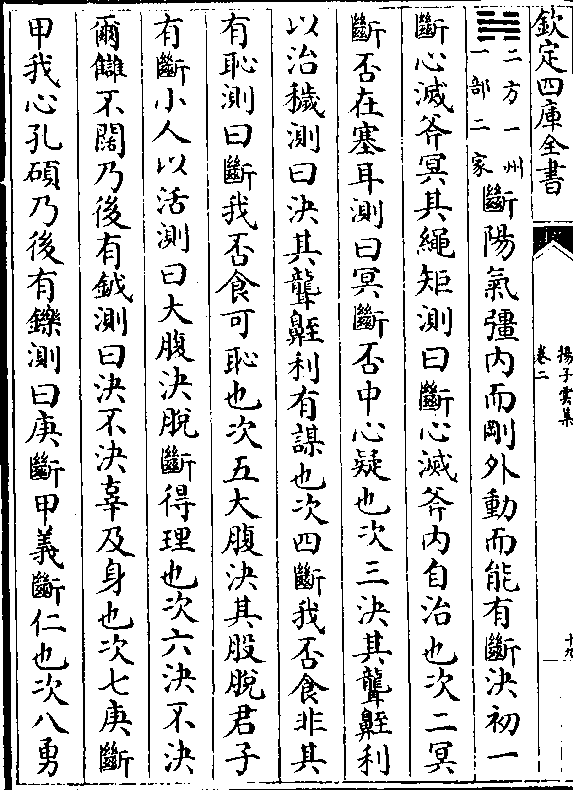 欽定四庫全書
揚子雲集
卷二
十九
二方一州
一部二家
斷陽氣彊内而剛外動而能有斷決初一
斷心滅斧冥其繩矩測曰斷心滅斧内自治也次二冥
斷否在塞耳測曰冥斷否中心疑也次三決其聾利
以治穢測曰決其聾利有謀也次四斷我否食非其
有恥測曰斷我否食可恥也次五大腹決其股脫君子
有斷小人以活測曰大腹決脫斷得理也次六決不決
爾讎不闊乃後有鉞測曰決不決辜及身也次七庚斷
甲我心孔碩乃後有鑠測曰庚斷甲義斷仁也次八勇